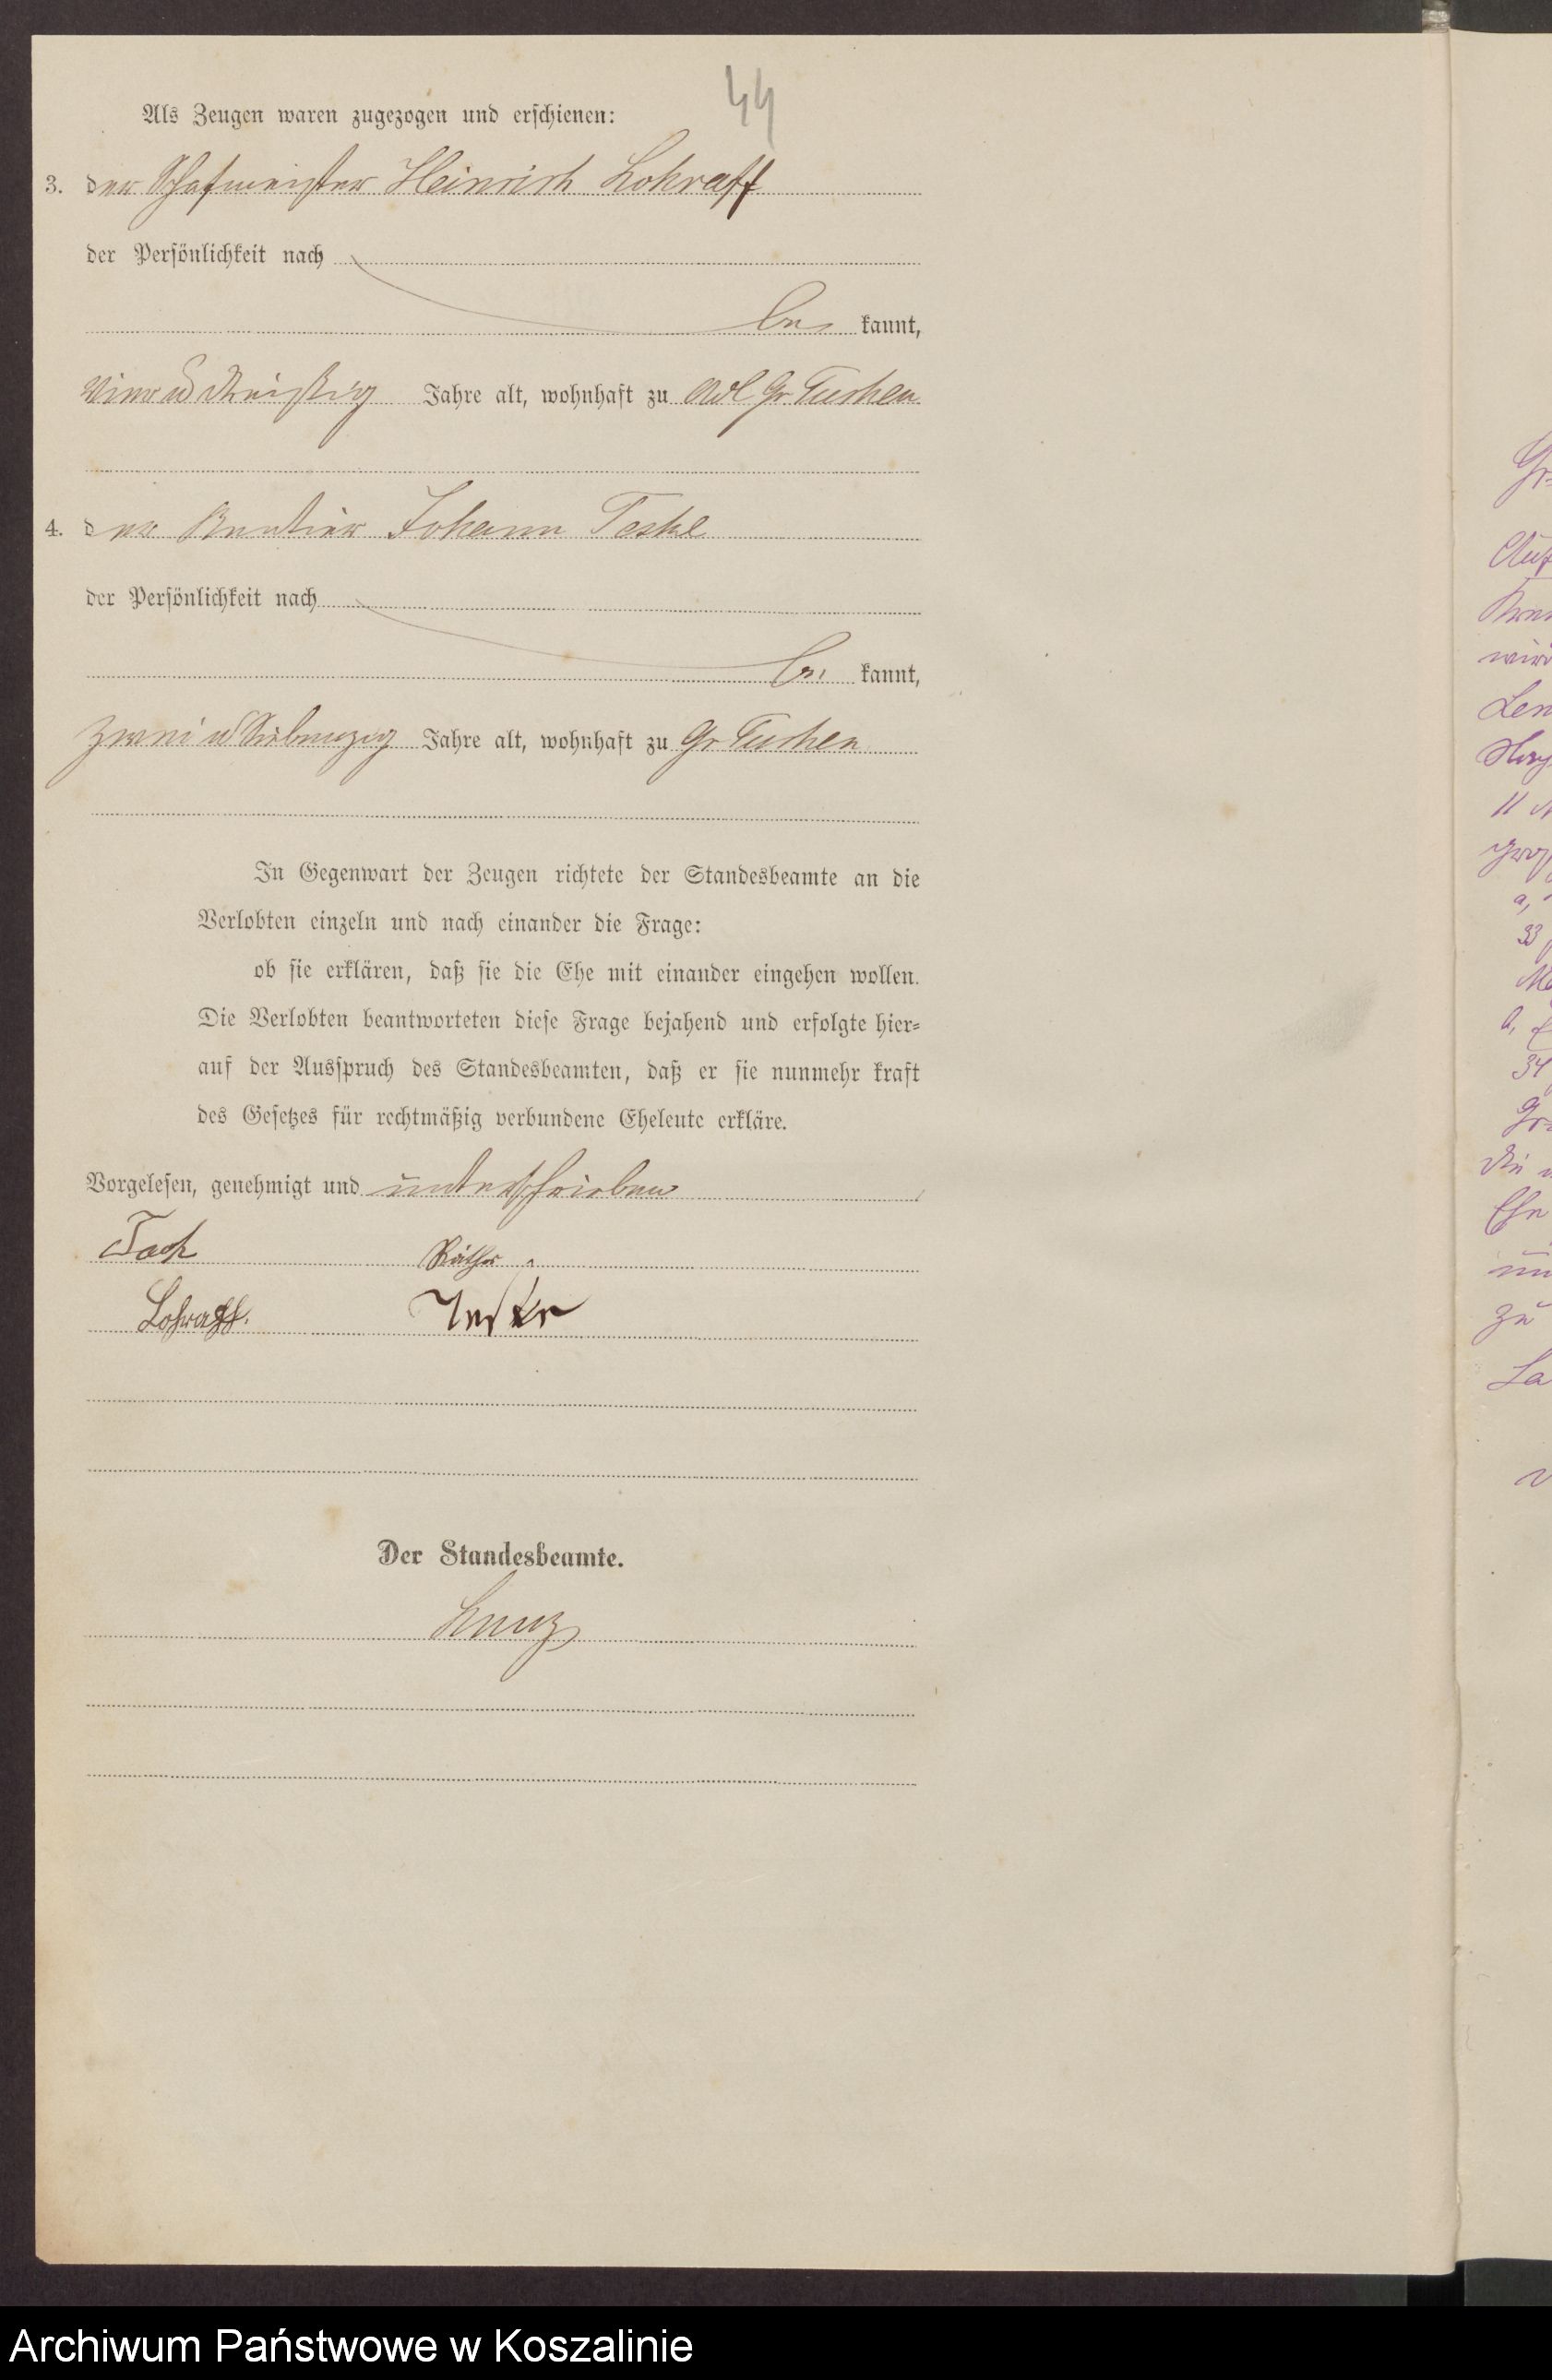 44
Als Zeugen waren zugezogen und erschienen:
3. der Schafmeister Heinrich Lohraff
der Persönlichkeit nach
be kannt,
vier u dreißig Jahre alt, wohnhaft zu Adl Gr. Tuchen
4. der Rentier Johann Teske
der Persönlichkeit nach
be kannt,
zwei u Siebenzig Jahre alt, wohnhaft zu Gr Tuchen
In Gegenwart der Zeugen richtete der Standesbeamte an die
Verlobten einzeln und nach einander die Frage:
ob sie erklären, daß sie die Ehe mit einander eingehen wollen.
Die Verlobten beantworteten diese Frage bejahend und erfolgte hier=
auf der Ausspruch des Standesbeamten, daß er sie nunmehr kraft
des Gesetzes für rechtmäßig verbundene Eheleute erkläre.
Vorgelesen, genehmigt und unterschrieben
Lohraff. Teske
Der Standesbeamte.
Archiwum Państwowe w Koszalinie